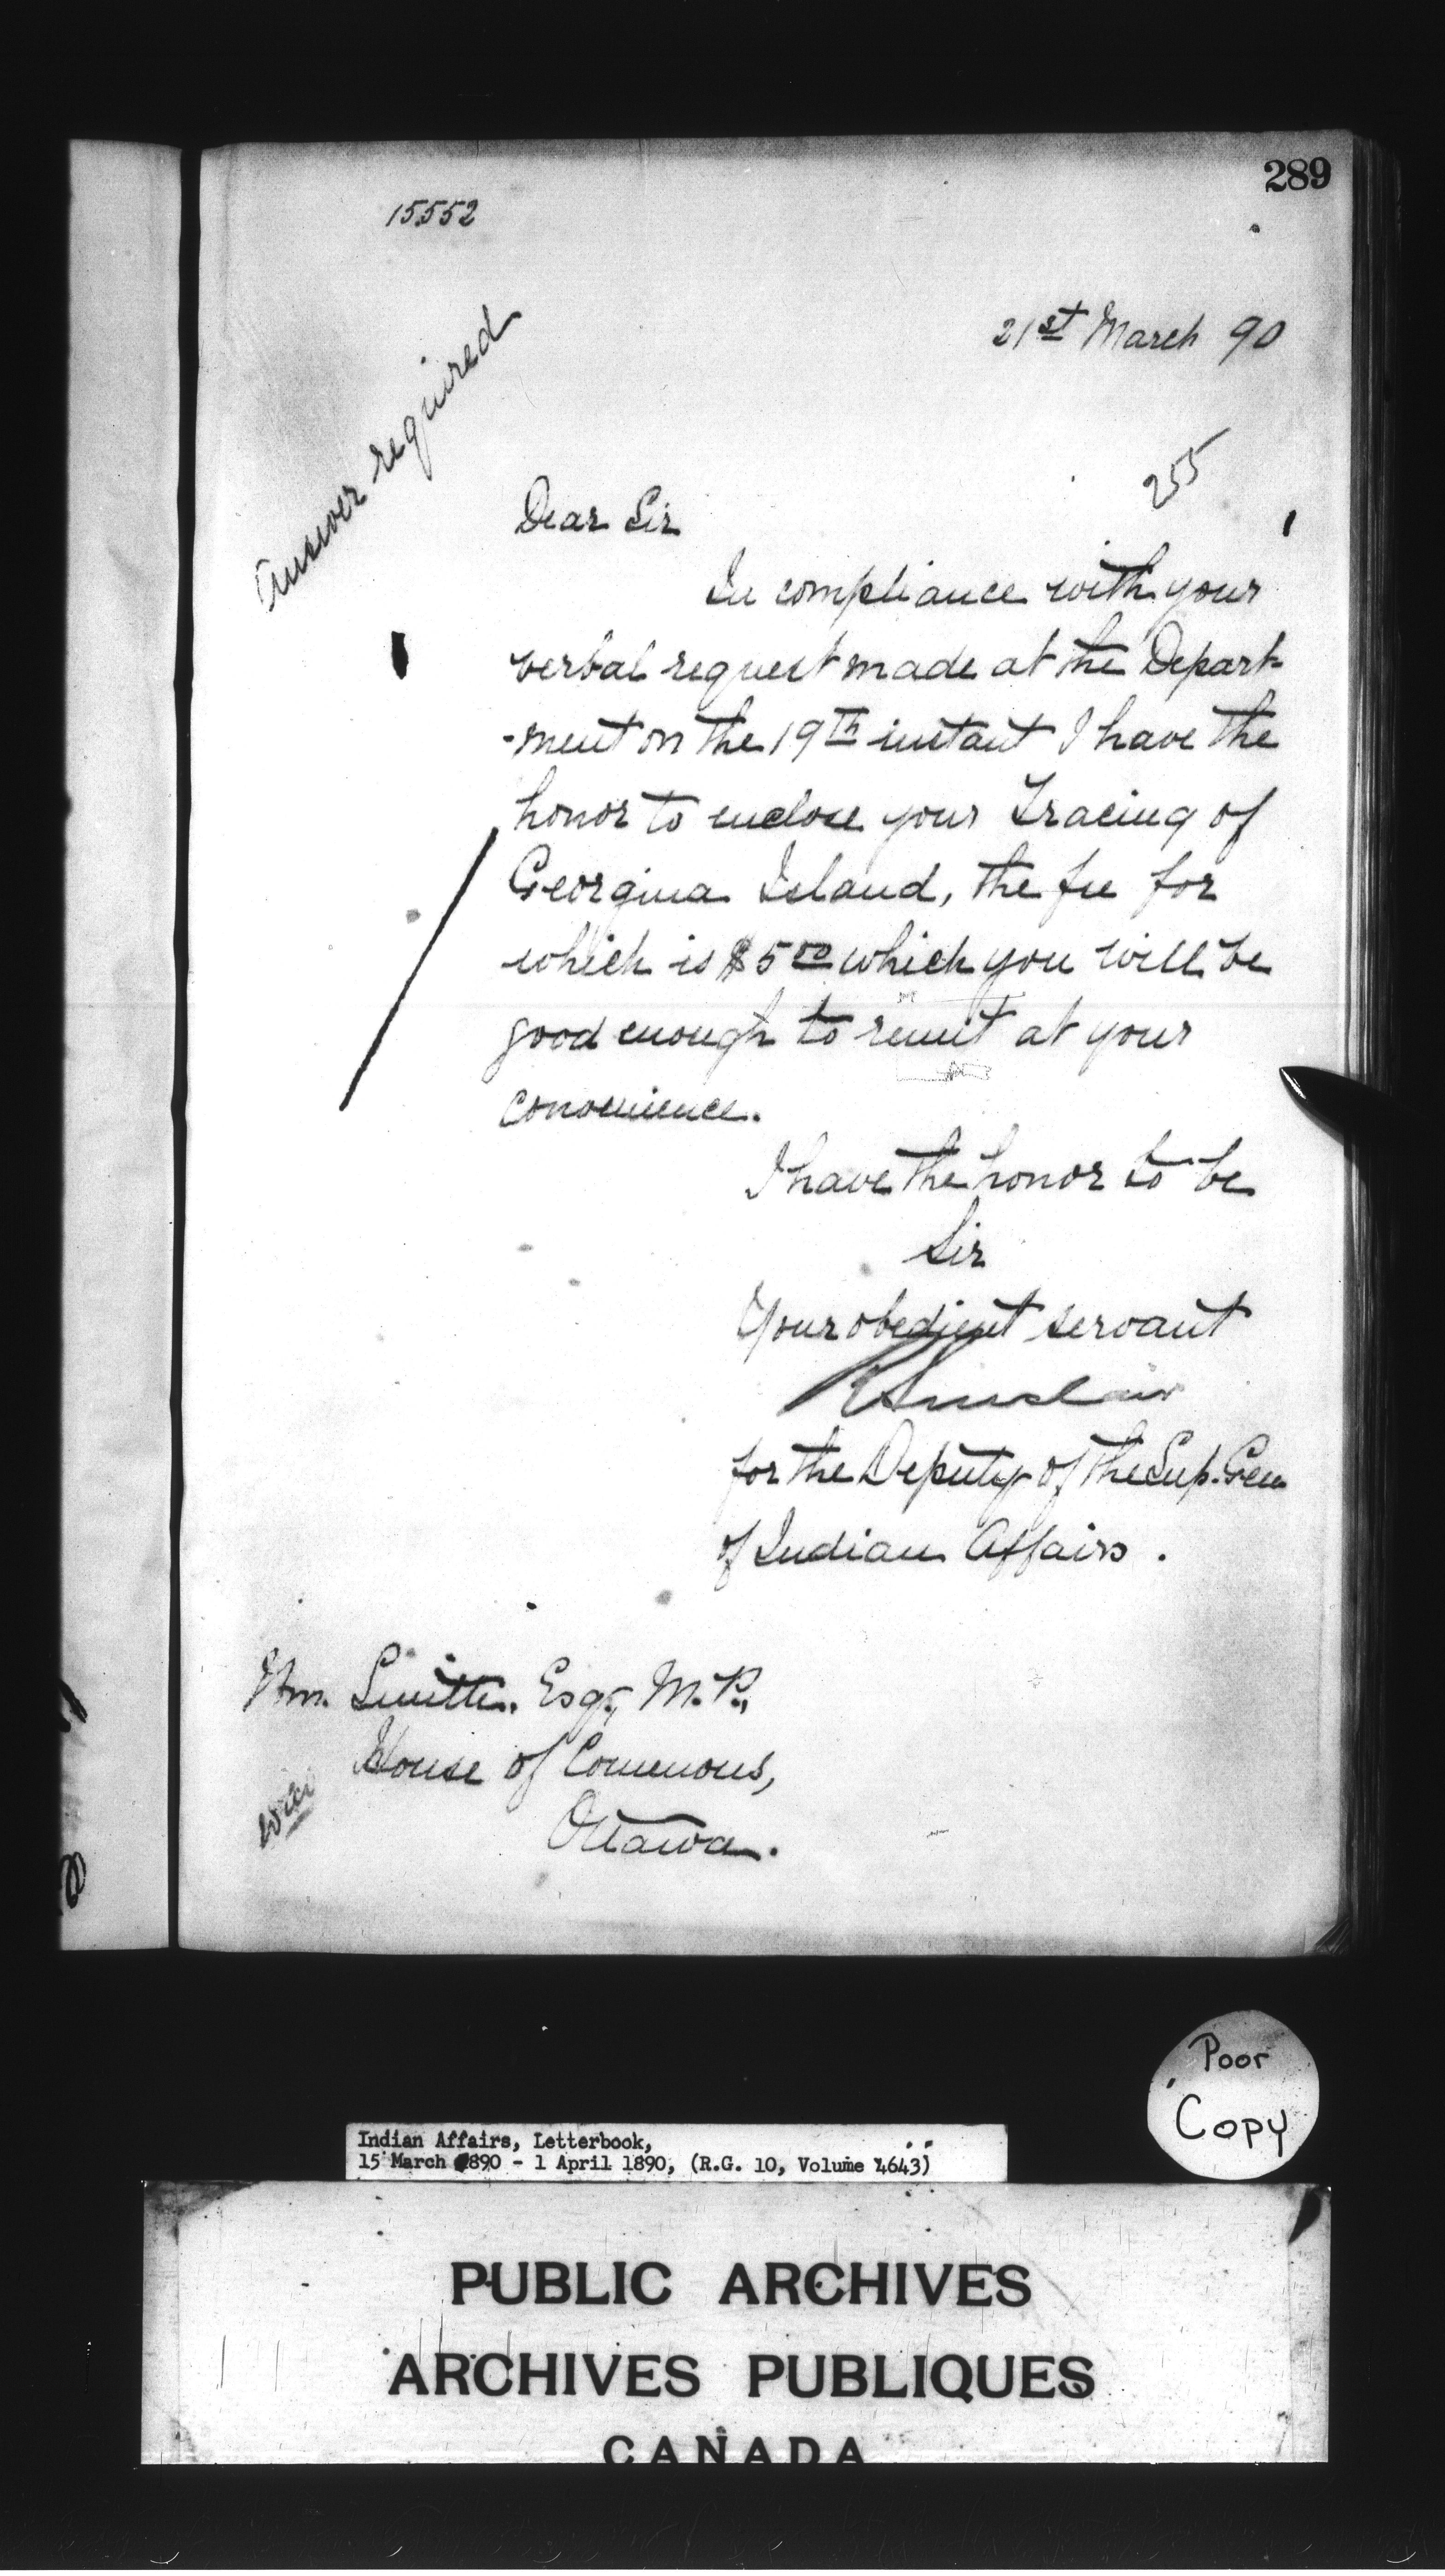 289
15552
Answer required
21st March 90
255
Dear Sir
In compliance with your
verbal request made at the Depart-
-ment on the 19th instant I have the
honor to enclose your Tracing of
Georgina Island, the fee for
which is $5 00 which you will be
good enough to remit at your
convenience.
I have the honor to be
Sir
Your obedient servant
Sinclair
for the Deputy of the Sup. Gen
of Indian Affairs.
Wm. Esq, M.P.,
House of Commons,
Ottawa.
Poor
Copy
Indian Affairs, Letterbook,
15 March 1890 - 1 April 1890, (R.G. 10, Volume 4643)
PUBLIC ARCHIVES
ARCHIVES PUBLIQUES
CANADA